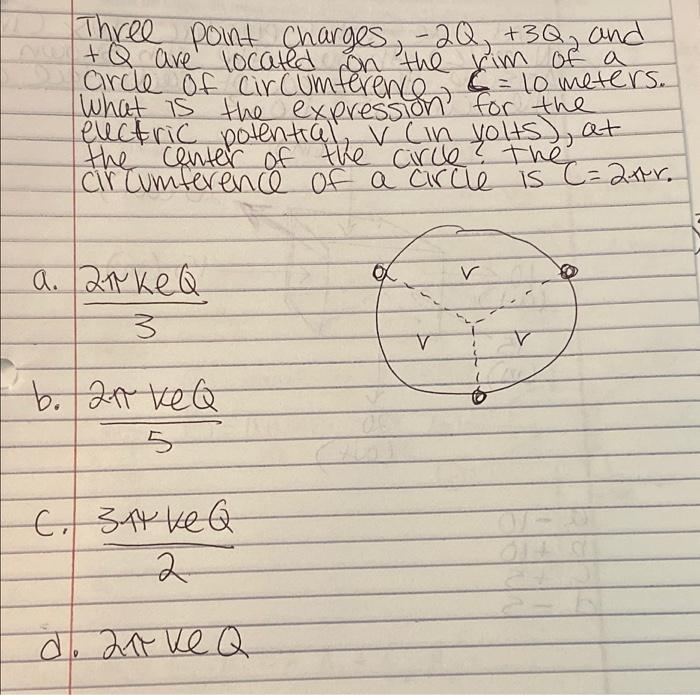 Three point charges, -2Q, +3Q, and
+Q are located on the rim of a
circle of circumference, C = 10 meters.
What is the expression for the
electric potential, V (in volts), at
the center of the circle? The
circumference of a circle is C = 2πr.
a. 2π keQ
3
r
r r
b. 2π keQ
5
c. 3π keQ
2
d. 2π ke Q